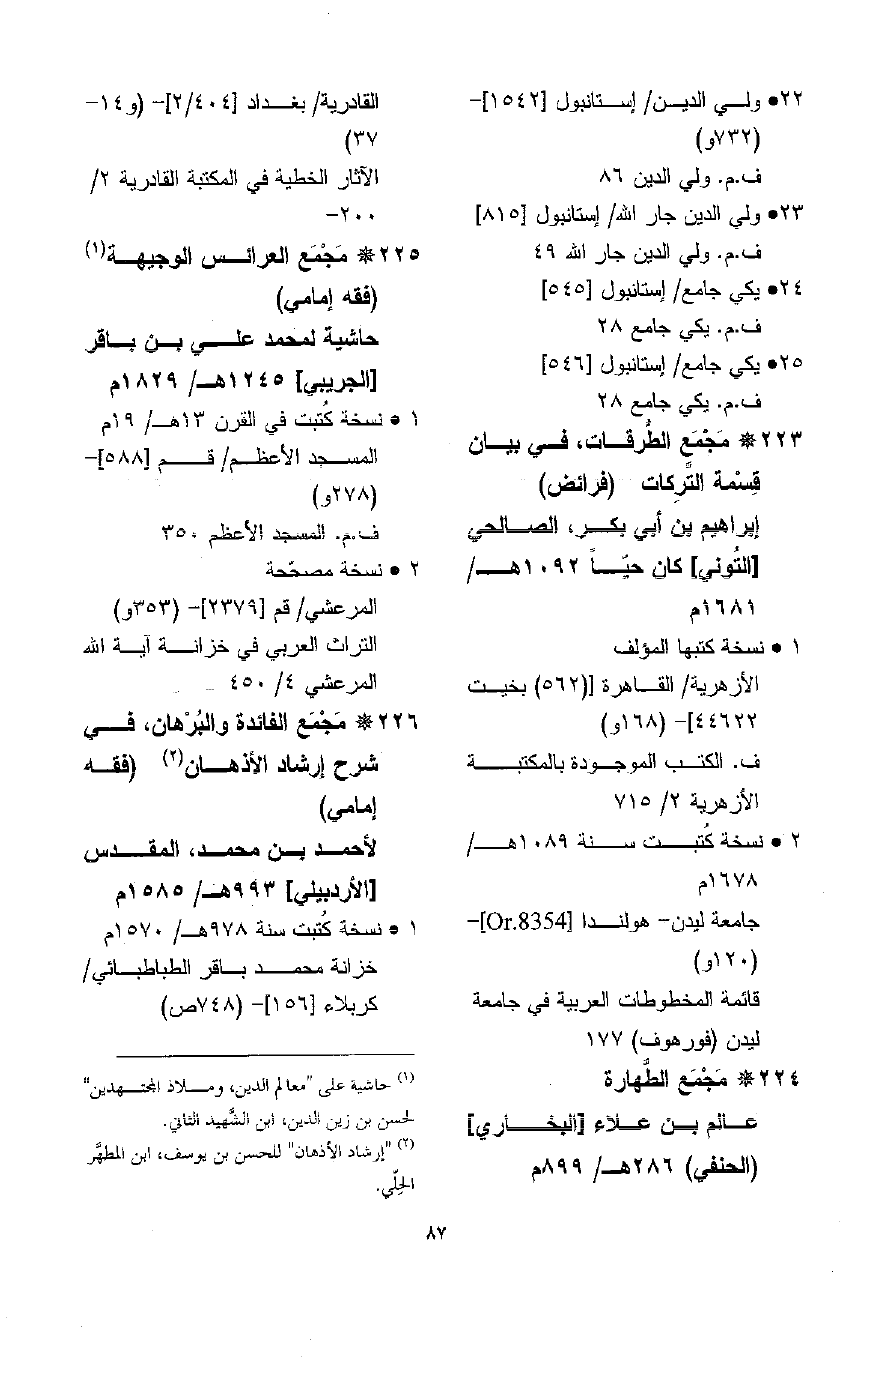 ٢٢• ولي الدين/ إستانبول [١٥٤٢]–
(٧٣٢و)
ف.م. ولي الدين ٨٦
٢٣• ولي الدين جار الله/ إستانبول [٨١٥]
ف.م. ولي الدين جار الله ٤٩
٢٤• يكي جامع/ إستانبول [٥٤٥]
ف.م. يكي جامع ٢٨
٢٥• يكي جامع/ إستانبول [٥٤٦]
ف.م. يكي جامع ٢٨
٢٢٣※ مَجْمَع الطُّرقات، في بيان
قِسْمة التَّرِكات (فرائض)
إبراهيم بن أبي بكر، الصالحي
[التُوني] كان حيّاً ١٠٩٢هـ/
١٦٨١م
١ • نسخة كتبها المؤلف
الأزهرية/ القاهرة [(٥٦٢) بخيت
٤٤٦٢٢]– (١٦٨و)
ف. الكتب الموجودة بالمكتبة
الأزهرية ٢/ ٧١٥
٢ • نسخة كُتبت سنة ١٠٨٩هـ/
١٦٧٨م
جامعة ليدن– هولندا [Or.8354]–
(١٢٠و)
قائمة المخطوطات العربية في جامعة
ليدن (فورهوف) ١٧٧
٢٢٤※ مَجْمَع الطَّهارة
عالم بن علاء [البخاري]
(الحنفي) ٢٨٦هـ/ ٨٩٩م
القادرية/ بغداد [٢/٤٠٤]– (و١٤–
٣٧)
الآثار الخطية في المكتبة القادرية ٢/
٢٠٠–
٢٢٥※ مَجْمَع العرائس الوجيهة(١)
(فقه إمامي)
حاشية لمحمد علي بن باقر
[الجريبي] ١٢٤٥هـ/ ١٨٢٩م
١ • نسخة كُتبت في القرن ١٣هـ/ ١٩م
المسجد الأعظم/ قم [٥٨٨]–
(٢٧٨و)
ف.م. المسجد الأعظم ٣٥٠
٢ • نسخة مصحّحة
المرعشي/ قم [٢٣٧٩]– (٣٥٣و)
التراث العربي في خزانة آية الله
المرعشي ٤/ ٤٥٠
٢٢٦※ مَجْمَع الفائدة والبُرْهان، في
شرح إرشاد الأذهان(٢) (فقه
إمامي)
لأحمد بن محمد، المقدس
[الأردبيلي] ٩٩٣هـ/ ١٥٨٥م
١ • نسخة كُتبت سنة ٩٧٨هـ/ ١٥٧٠م
خزانة محمد باقر الطباطبائي/
كربلاء [١٥٦]– (٧٤٨ص)
(١) حاشية على "معالم الدين، وملاذ المجتهدين"
لحسن بن زين الدين، ابن الشَّهيد الثاني.
(٢) "إرشاد الأذهان" للحسن بن يوسف، ابن المطهَّر
الحِلّي.
٨٧